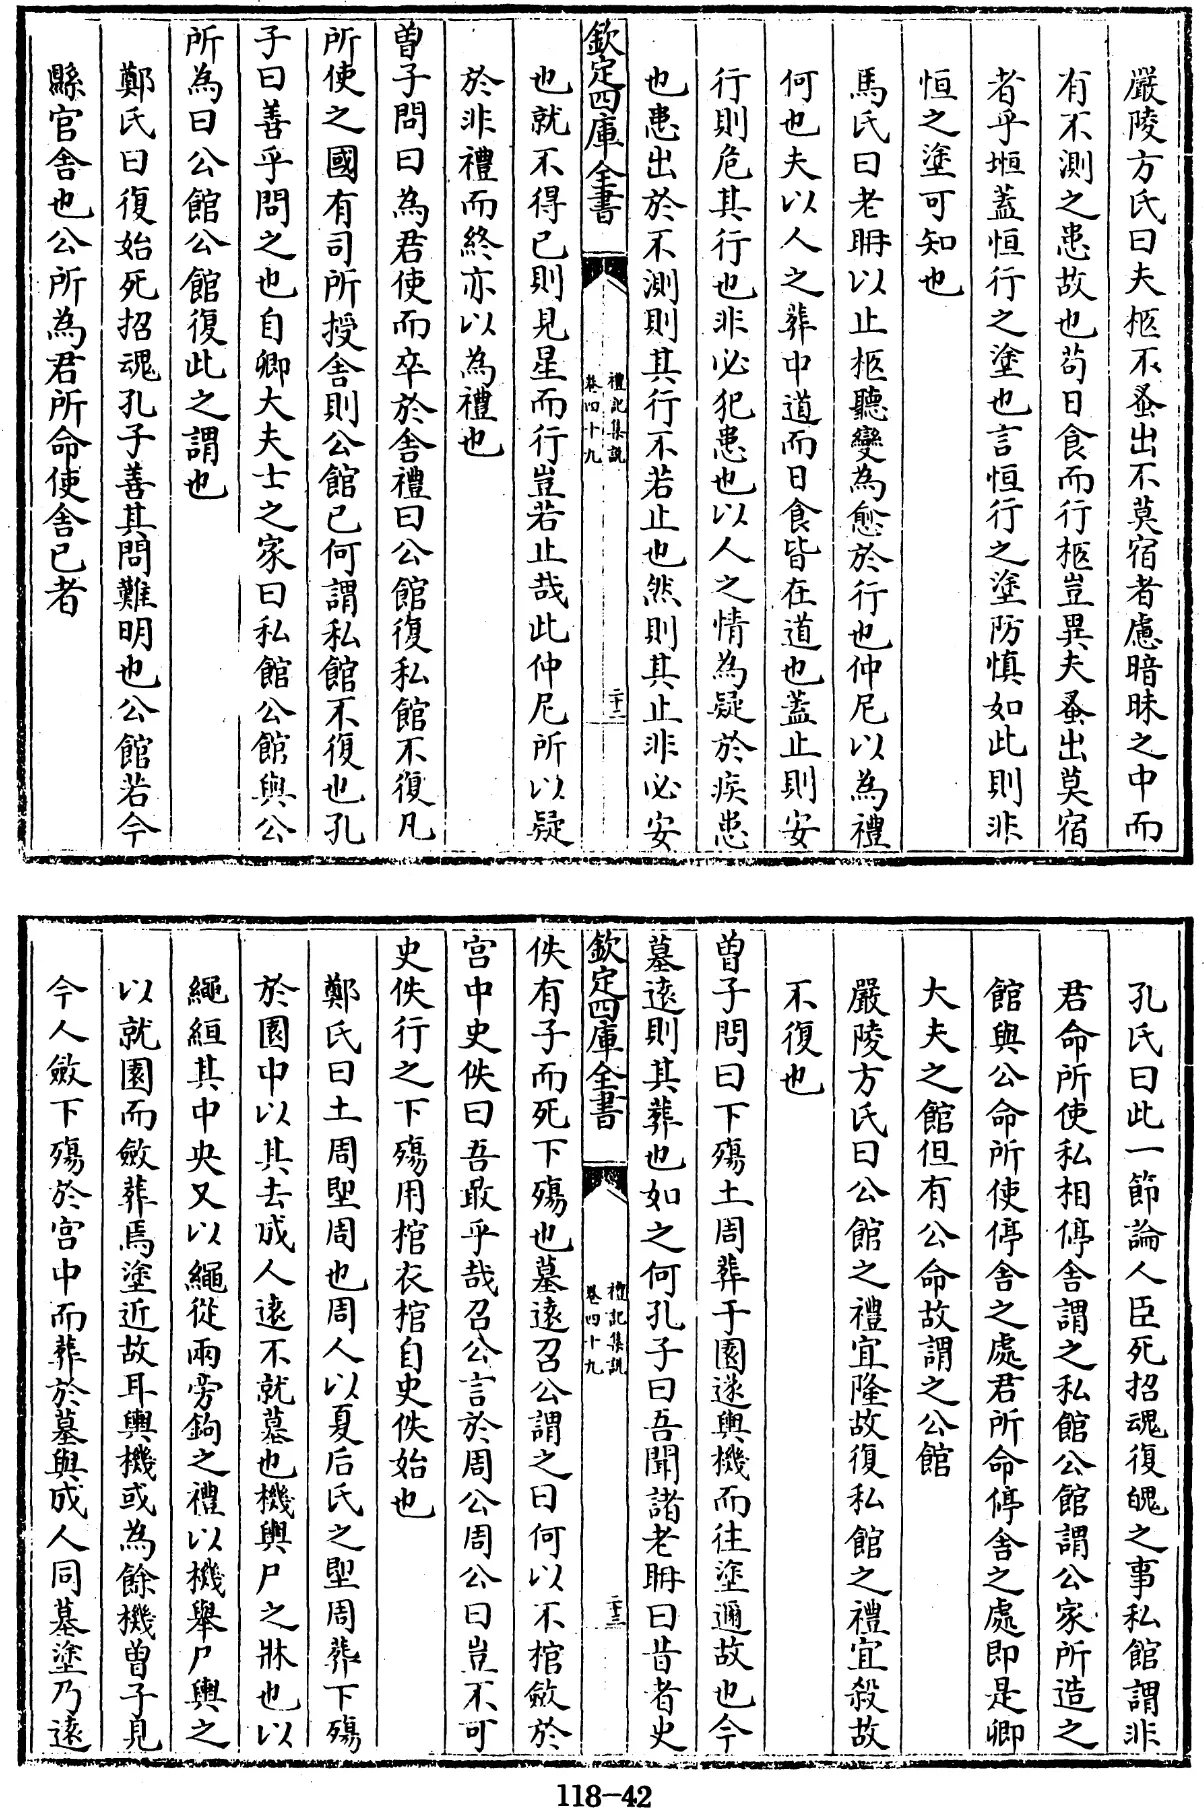 嚴陵方氏曰夫柩不蚤出不莫宿者慮暗昧之中而
有不測之患故也茍日食而行柩豈異夫蚤出莫宿
者乎堩蓋恒行之塗也言恒行之塗防慎如此則非
恒之塗可知也
馬氏曰老聃以止柩聽變為愈於行也仲尼以為禮
何也夫以人之葬中道而日食皆在道也蓋止則安
行則危其行也非必犯患也以人之情為疑於疾患
也患出於不測則其行不若止也然則其止非必安
欽定四庫全書
禮記集說
卷四十九
二十二
也就不得已則見星而行豈若止哉此仲尼所以疑
於非禮而終亦以為禮也
曽子問曰為君使而卒於舍禮曰公館復私館不復凡
所使之國有司所授舍則公館已何謂私館不復也孔
子曰善乎問之也自卿大夫士之家曰私館公館與公
所為曰公館公館復此之謂也
鄭氏曰復始死招魂孔子善其問難明也公館若今
縣官舍也公所為君所命使舍已者
孔氏曰此一節論人臣死招魂復魄之事私館謂非
君命所使私相停舍謂之私館公館謂公家所造之
館與公命所使停舍之處君所命停舍之處即是卿
大夫之館但有公命故謂之公館
嚴陵方氏曰公館之禮宜隆故復私館之禮宜殺故
不復也
曽子問曰下殤土周葬于園遂輿機而往塗邇故也今
墓逺則其葬也如之何孔子曰吾聞諸老聃曰昔者史
欽定四庫全書
禮記集說
卷四十九
二十三
佚有子而死下殤也墓逺召公謂之曰何以不棺斂於
宫中史佚曰吾敢乎哉召公言於周公周公曰豈不可
史佚行之下殤用棺衣棺自史佚始也
鄭氏曰土周堲周也周人以夏后氏之堲周葬下殤
於園中以其去成人逺不就墓也機輿尸之牀也以
繩絙其中央又以繩從兩旁鉤之禮以機舉尸輿之
以就園而斂葬焉塗近故耳輿機或為餘機曽子見
今人斂下殤於宫中而葬於墓與成人同墓塗乃逺
118-42